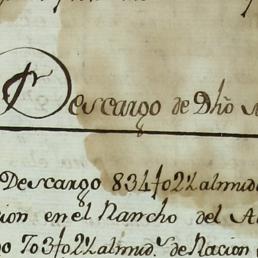 Descargo de Dho
Descargo 834fo2½ almud
cion en el Rancho del
703fo2½ almud.s de Racion